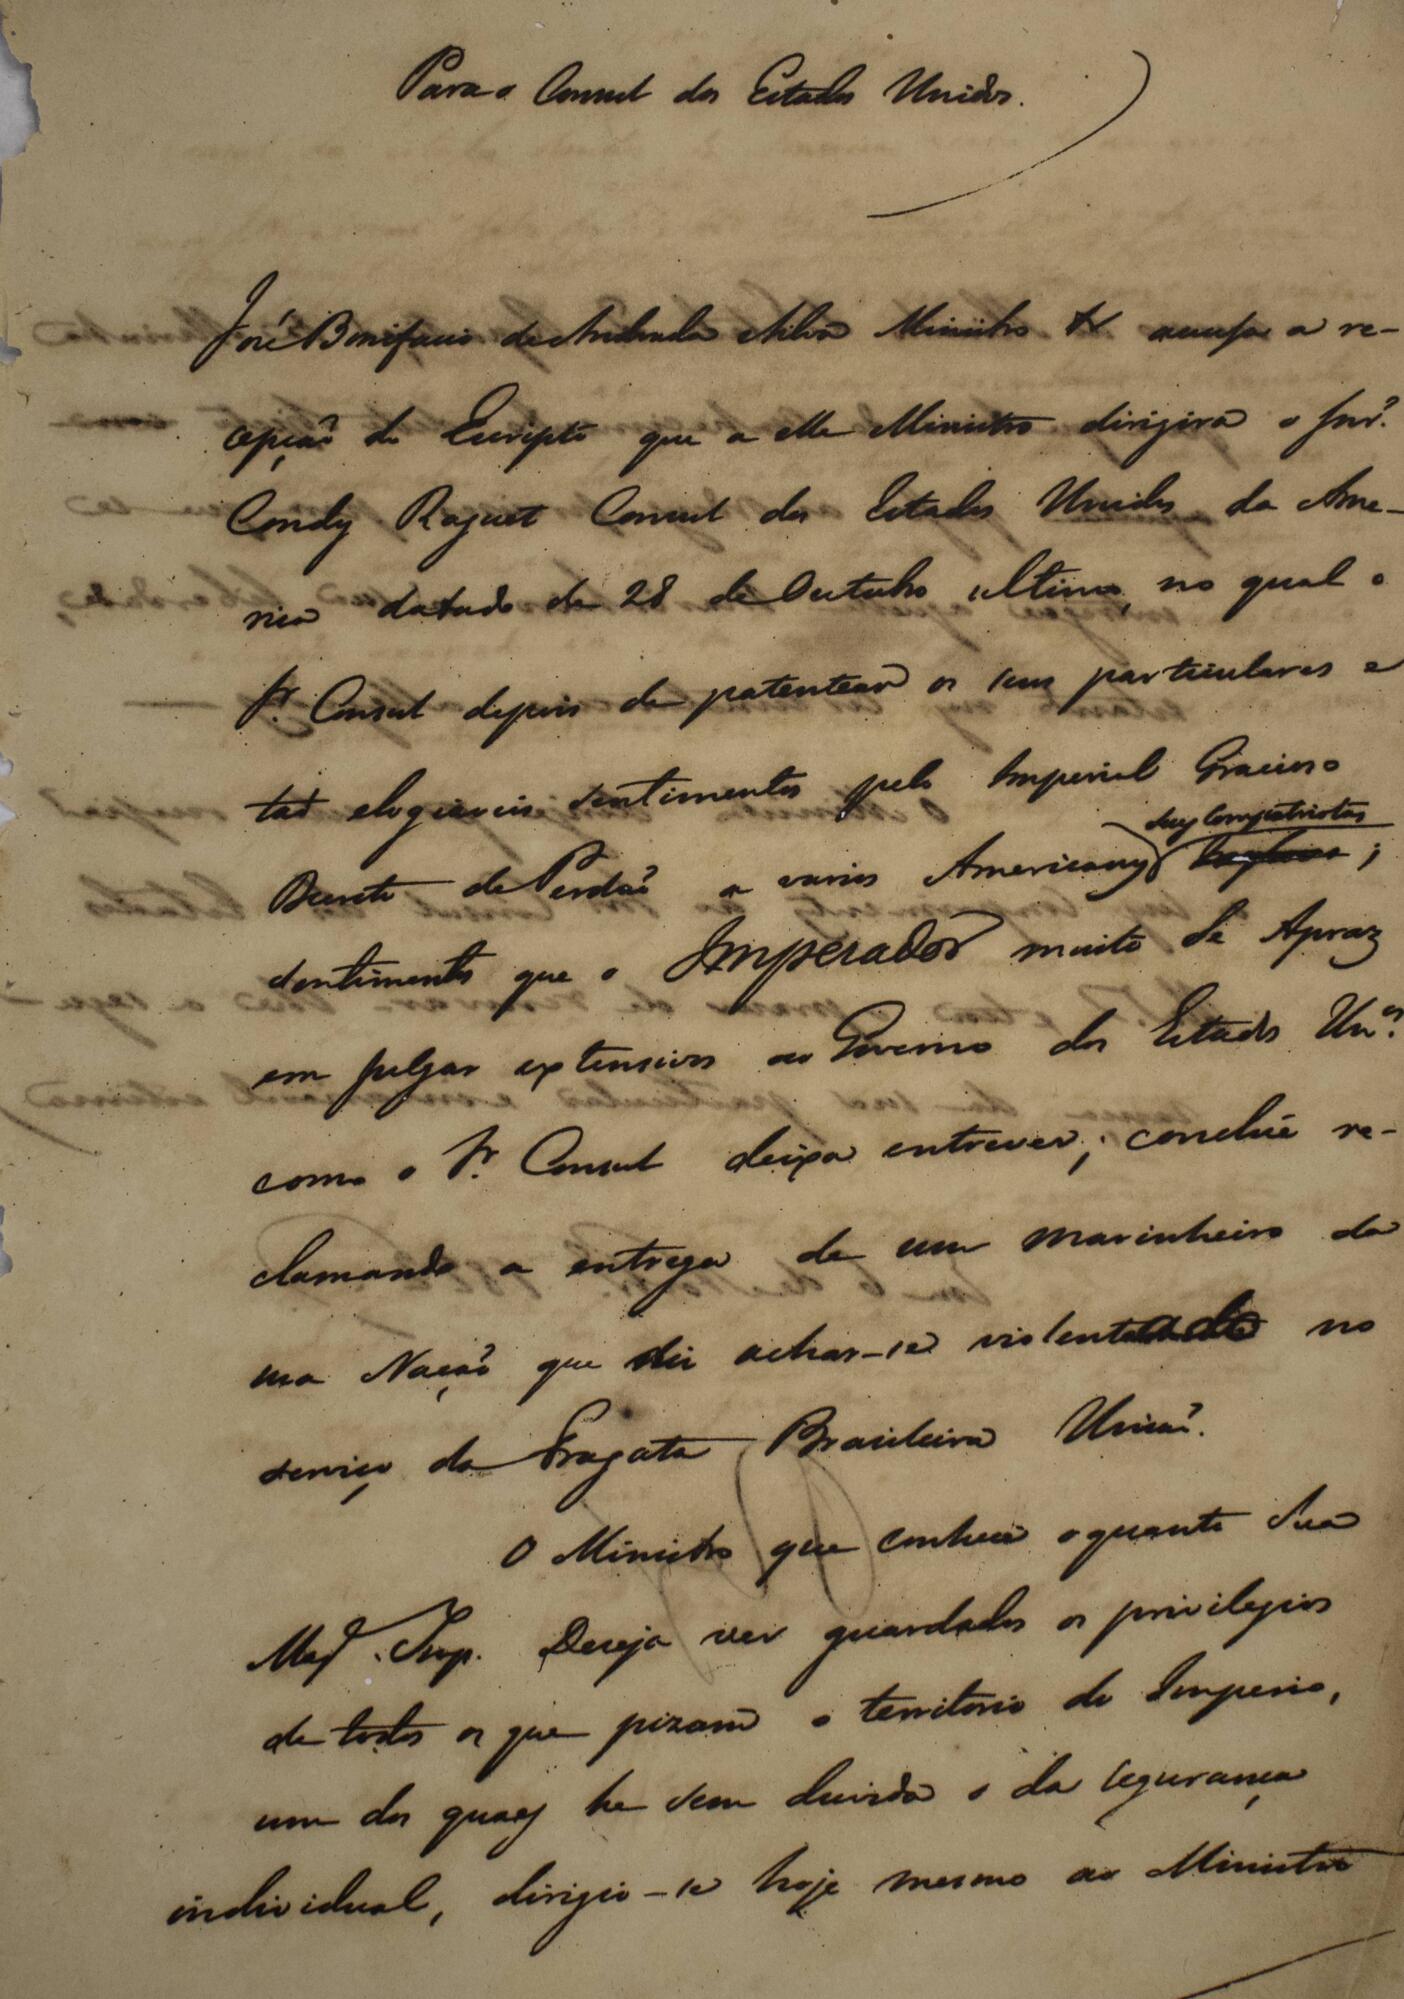 Para o Consul dos Estados Unidos.
José Bonifacio de Andrada e Silva Ministro &c accusa a re-
cepção do Escripto que a elle Ministro dirigira o Snr.
Condy Raguet Consul dos Estados Unidos da Ame-
rica datado de 28 de Outubro ultimo, no qual o
Sr. Consul depois de patentear os seus particulares e
tão elogiaveis sentimentos pelo Imperial Gracioso
Decreto de Perdão a varios Americanos seus Compatriotas;
sentimentos que o Imperador muito Se Apraz
em julgar extensivos ao Governo dos Estados Un.os
como o Sr. Consul deixa entrever; conclúe re-
clamando a entrega de um marinheiro da
sua Nação que diz achar-se violentado no
serviço da Fragata Brasileira União.
O Ministro que conhece o quanto Sua
Mag. Imp. Deseja ver guardados os privilegios
de todos os que pizam o territorio do Imperio,
um dos quaes he sem duvida o da segurança
individual, dirigio-se hoje mesmo ao Ministro